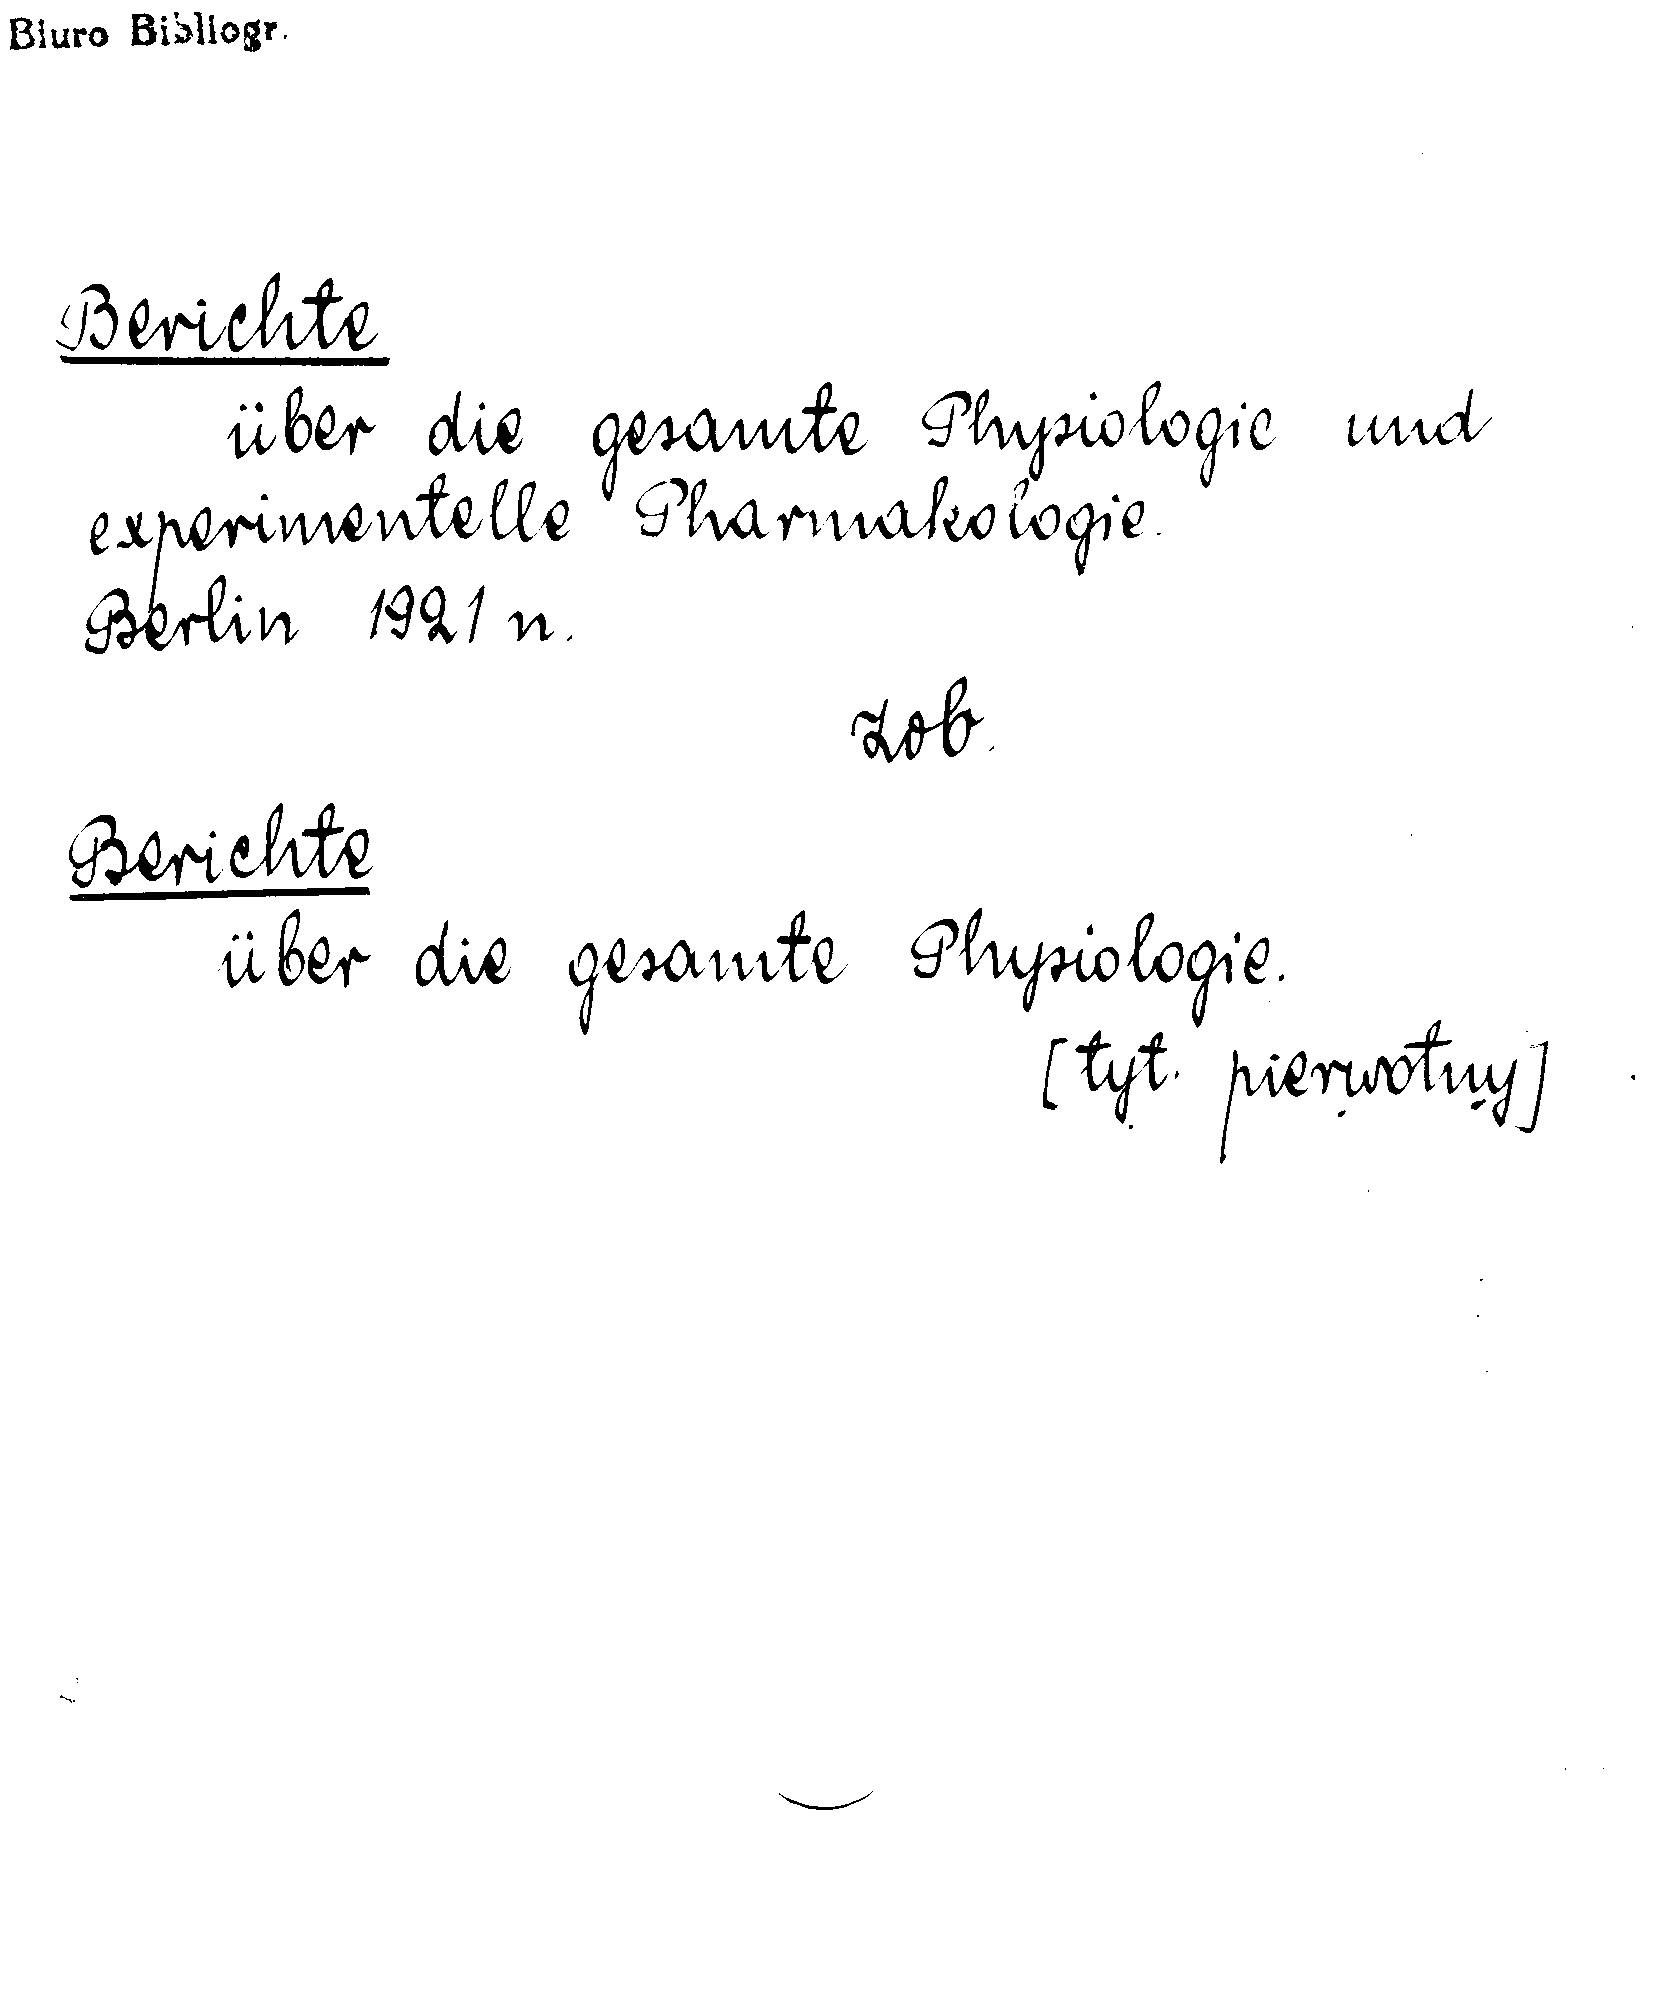 Biuro Bibliogr.
Berichte
über die gesamte Physiologie und
experimentelle Pharmakologie.
Berlin 1921 n.
zob.
Berichte
über die gesamte Physiologie.
[tyt. pierwotny]